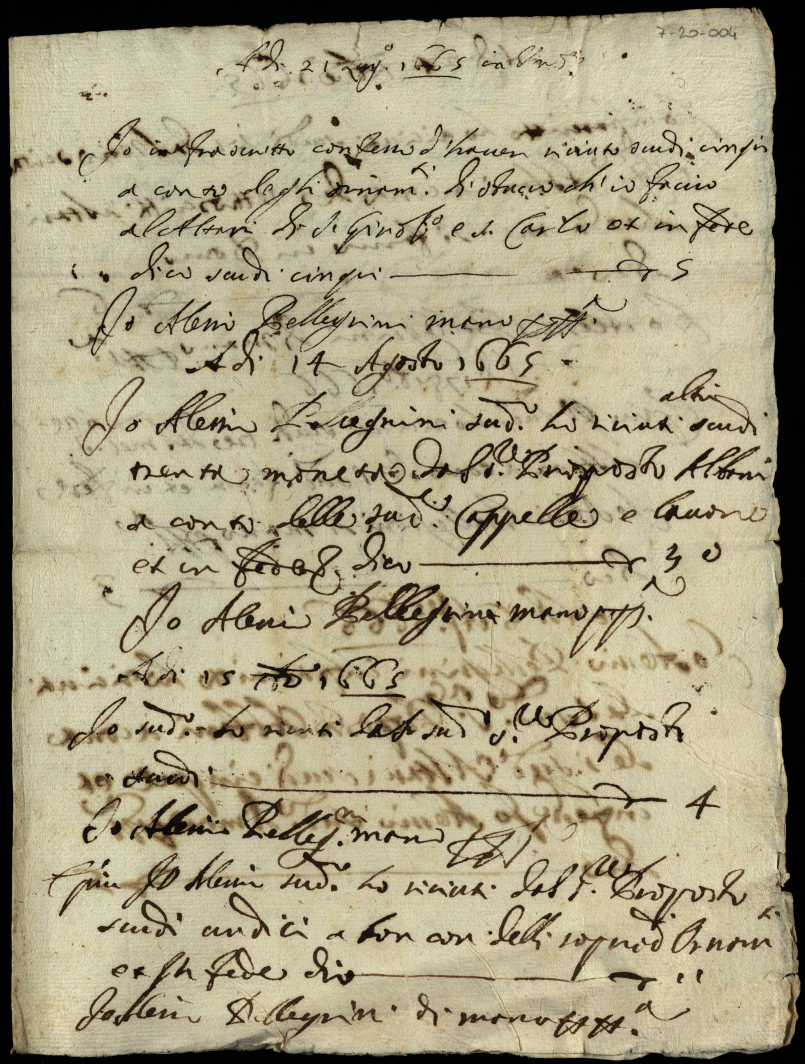 7-20-004
Adi 21 1665 in
Io infrascritto confesso d'haver riciuto scudi cinqu
a conto degli ornam.ti di stucco ch'io facio
al Altari di S. e S. Carlo et in fede
dico scudi cinqui 5
Io Alessi Pellegrini mano pp.a
Adi 14 Agosto 1665
Io Alessi Pelegrini sud.o ho riciuti altri scudi
trenta moneta dal S.r Proposto Albani
a conto delle sud.e Cappelle e lavoro
et in fede dico 30
Io Alessi Pellegrini mano pp.a
Adi 15 1665
Io sud.o ho riciuti dal sud.o S.r Proposto
scudi 4
Io Alessi Pelleg.ni mano
E più Io Alessi sud.o ho riciuti dal S.r Proposto
scudi undici a bon con. delli sopradi Ornam.ti
et in fede dico 11
Io Alessi Pellegrini di mano pp.a